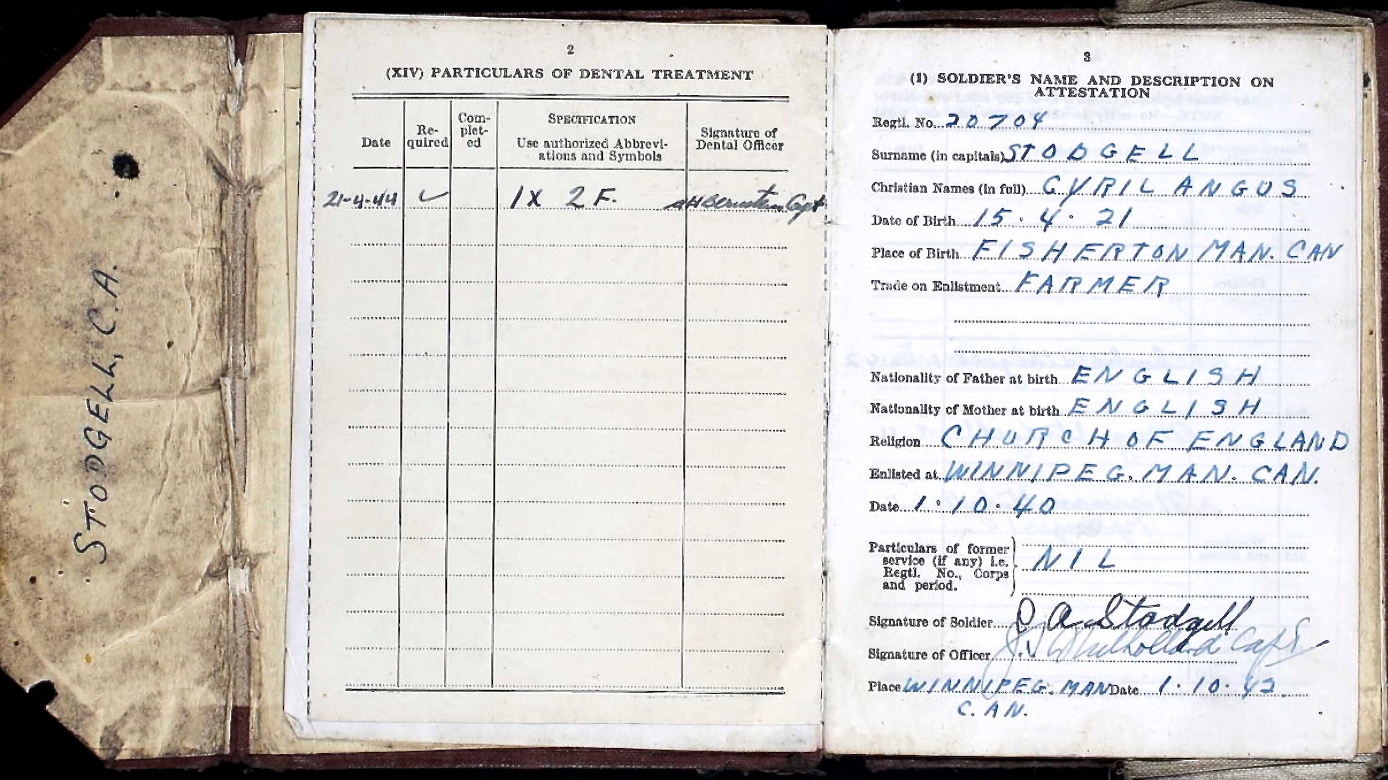 STODGELL, C.A.
2
(XIV) PARTICULARS OF DENTAL TREATMENT
Date
Re-
quired
Com-
plet-
ed
SPECIFICATION
Use authorized Abbrevi-
ations and Symbols
Signature of
Dental Officer
21-4-44 ✓ 1X 2F. Capt
3
(1) SOLDIER'S NAME AND DESCRIPTION ON
ATTESTATION
Regtl. No. 20704
Surname (in capitals) STODGELL
Christian Names (in full) CYRIL ANGUS
Date of Birth 15.4.21
Place of Birth FISHERTON MAN. CAN
Trade on Enlistment FARMER
Nationality of Father at birth ENGLISH
Nationality of Mother at birth ENGLISH
Religion CHURCH OF ENGLAND
Enlisted at WINNIPEG. MAN. CAN.
Date 1.10.40
Particulars of former
service (if any) i.e.
Regtl. No., Corps
and period.
NIL
Signature of Soldier C A Stodgell
Signature of Officer Mulholland Capt
Place WINNIPEG. MAN Date 1.10.42
C.AN.